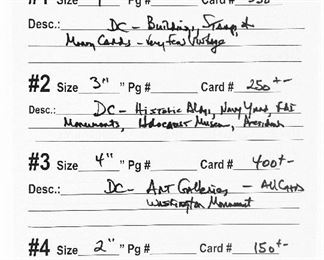 #1 Size 1" Pg # Card # 350
Desc.: DC - Buildings, Stamp &
Many Cards - Very Few Vintage
#2 Size 3" Pg# Card # 250+-
Desc.: DC - Historic Bldgs, Navy Yard, FBI
Monuments, Holocaust Museum, Presidents
#3 Size 4" Pg# Card # 400+-
Desc.: DC - Art Galleries - All Chas
Washington Monument
#4 Size 2" Pg# Card # 150+-